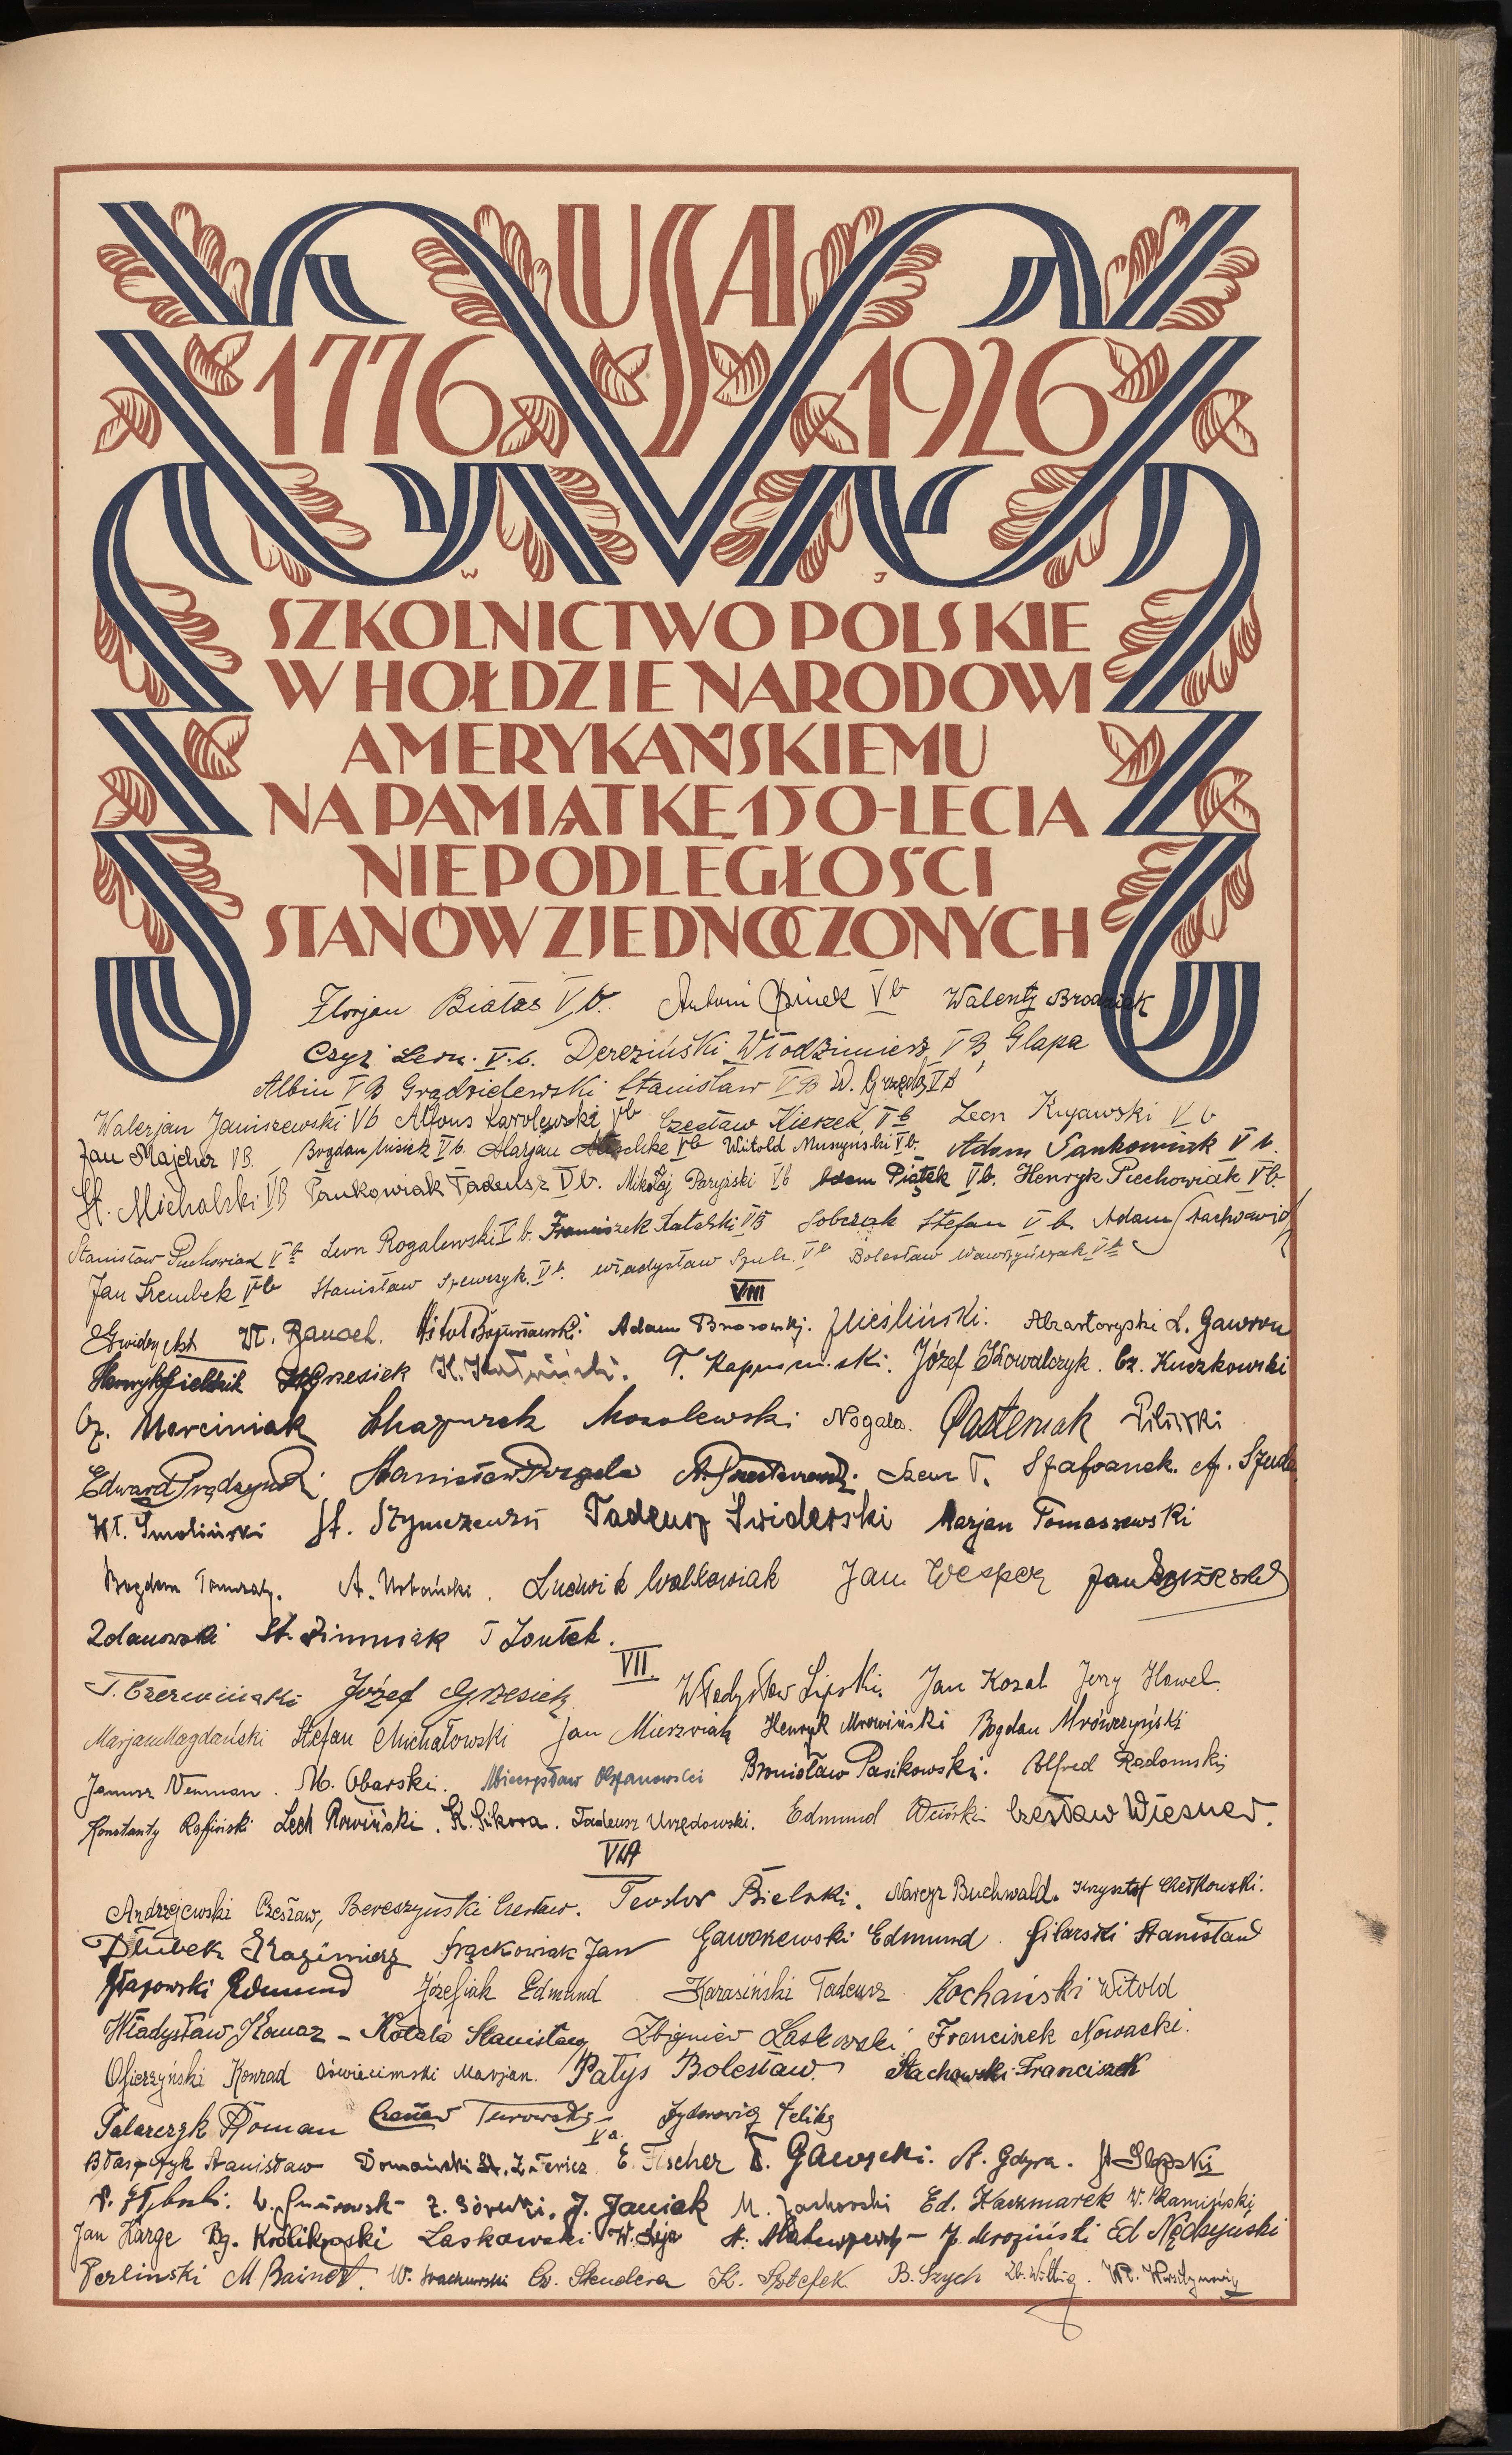 USA
1776 1926
W J
SZKOLNICTWO POLSKIE
W HOŁDZIE NARODOWI
AMERYKAŃSKIEMU
NA PAMIĄTKĘ 150-LECIA
NIEPODLEGŁOŚCI
STANÓW ZJEDNOCZONYCH
Florjan Białas Vb. Antoni Vb Walenty Brodniak
Czyż Leon. V.b. Dereziński Włodzimierz VB Glapa
Albin VB Grądzielewski Stanisław VB W.
Walerjan Janiszewski Vb Alfons Karolewski Vb Czesław Kierzek Vb Leon Kujawski Vb
Jan Majcher VB. Bogdan Misiek Vb. Marjan Vb Witold Musyński Vb. Adam Pankowiak Vb.
St. Michalski VB Pankowiak Tadeusz Vb. Mikołaj Paryzski Vb Adam Piątek Vb. Henryk Piechowiak Vb.
Stanisław Vb Leon Rogalewski Vb. Franciszek Ratalski VB Sobczak Stefan Vb. Adam Stachowio
Jan Szembek Vb Stanisław Szewczyk. Vb. Władysław Szulc. Vb Bolesław Wawrzyńczak Vb
VIII
Wł. Bauach. Witold Adam Brzozowski. J Cieśliński. L. Gawron
Henryk Grzesiek K. T. Józef Kowalczyk. Cz. Kuczkowski
Cz. Marciniak Mazurek Mosolewski Nogala. Pasternak Pilarski
Edward Prądzyński Stanisław Purgala A. Szewc T. Szafranek. A. Szuda
Wł. Smoliński St. Tadeusz Świderski Marjan Tomaszewski
Bogdan A. Urbański. Ludwik Walkowiak Jan Wesper Jan
Zdanowski St. Zimniak T Zoutek.
VII.
T. Czerwiński Józef Grzesiek Władysław Lipski. Jan Kozal Jerzy Hawel.
Marjan Magdański Stefan Michałowski Jan Mierzwiak Henryk Mrowiński Bogdan Mrówczyński
Janusz Neuman. M. Obarski. Mieczysław Olszanowski Bronisław Pasikowski. Alfred Radomski
Konstanty Rofiński Lech Rowiński. K. Sikora. Tadeusz Urzędowski. Edmund Wiórki Czesław Wiesner.
VIA
Andrzejewski Czesław, Bereszyński Czesław. Teodor Bielski. Narcyz Buchwald. Krzysztof
Dłubek Kazimierz Frąckowiak Jan Gaworzewski Edmund. Gilarski Stanisław
Edmund Józefiak Edmund Karasiński Tadeusz Kochański Witold
Władysław Komaz - Kotala Stanisław Zbigniew Laskowski Franciszek Nowacki.
Ofierzyński Konrad Oświecimski Marjan. Patys Bolesław Stachowski Franciszek
Talarczyk Roman Czesław Turowski Feliks
Va.
Błaszczyk Stanisław Domański St. E. Fischer T. Gawrecki. A. Gdyra.
Z. Górecki. J. Janiak M. Jachorski Ed. Kaczmarek W. Kamiński
Jan Karge Bg. Królikowski Laskowski W. Leja J. Mroziński Ed Nędzyński
Perlinski M Rainert. W. Strachurski Cz. Skudera K. Sztefek B. Szych Zb. Wittig. Wł.